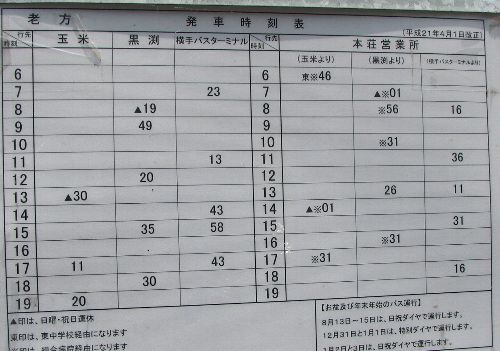 老方 発車時刻表 (平成21年4月1日改正)
行先 時刻 玉米 黒渕 横手バスターミナル 行先 時刻 本荘営業所
(玉米より) (黒渕より) (横手バスターミナルより)
6 6 東※46
7 23 7 ▲※01
8 ▲19 8 ※56 16
9 49 9
10 10 ※31
11 13 11 36
12 20 12
13 ▲30 13 26 11
14 43 14 ▲※01
15 35 58 15 31
16 16 ※31
17 11 43 17 ※31
18 30 18 16
19 20 19
▲印は、日曜・祝日運休
東印は、東中学校経由になります
※印は、総合病院経由になります
【お盆及び年末年始のバス運行】
8月13日～15日は、日祝ダイヤで運行します。
12月31日と1月1日は、特別ダイヤで運行します。
1月2日と3日は、日祝ダイヤで運行します。